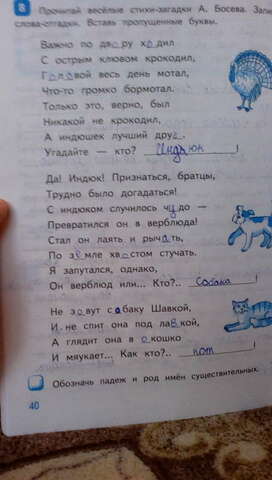 8 Прочитай весёлые стихи-загадки А. Босева. Запи
слова-отгадки. Вставь пропущенные буквы.
Важно по двору ходил
С острым клювом крокодил,
Головой весь день мотал,
Что-то громко бормотал.
Только это, верно, был
Никакой не крокодил,
А индюшек лучший друг.
Угадайте — кто? Индюк !
Да! Индюк! Признаться, братцы,
Трудно было догадаться!
С индюком случилось чудо —
Превратился он в верблюда!
Стал он лаять и рычать,
По земле хвостом стучать.
Я запутался, однако,
Он верблюд или... Кто?.. Собака !
Не зовут собаку Шавкой,
И не спит она под лавкой,
А глядит она в окошко
И мяукает... Как кто?.. кот !
Обозначь падеж и род имён существительных.
40